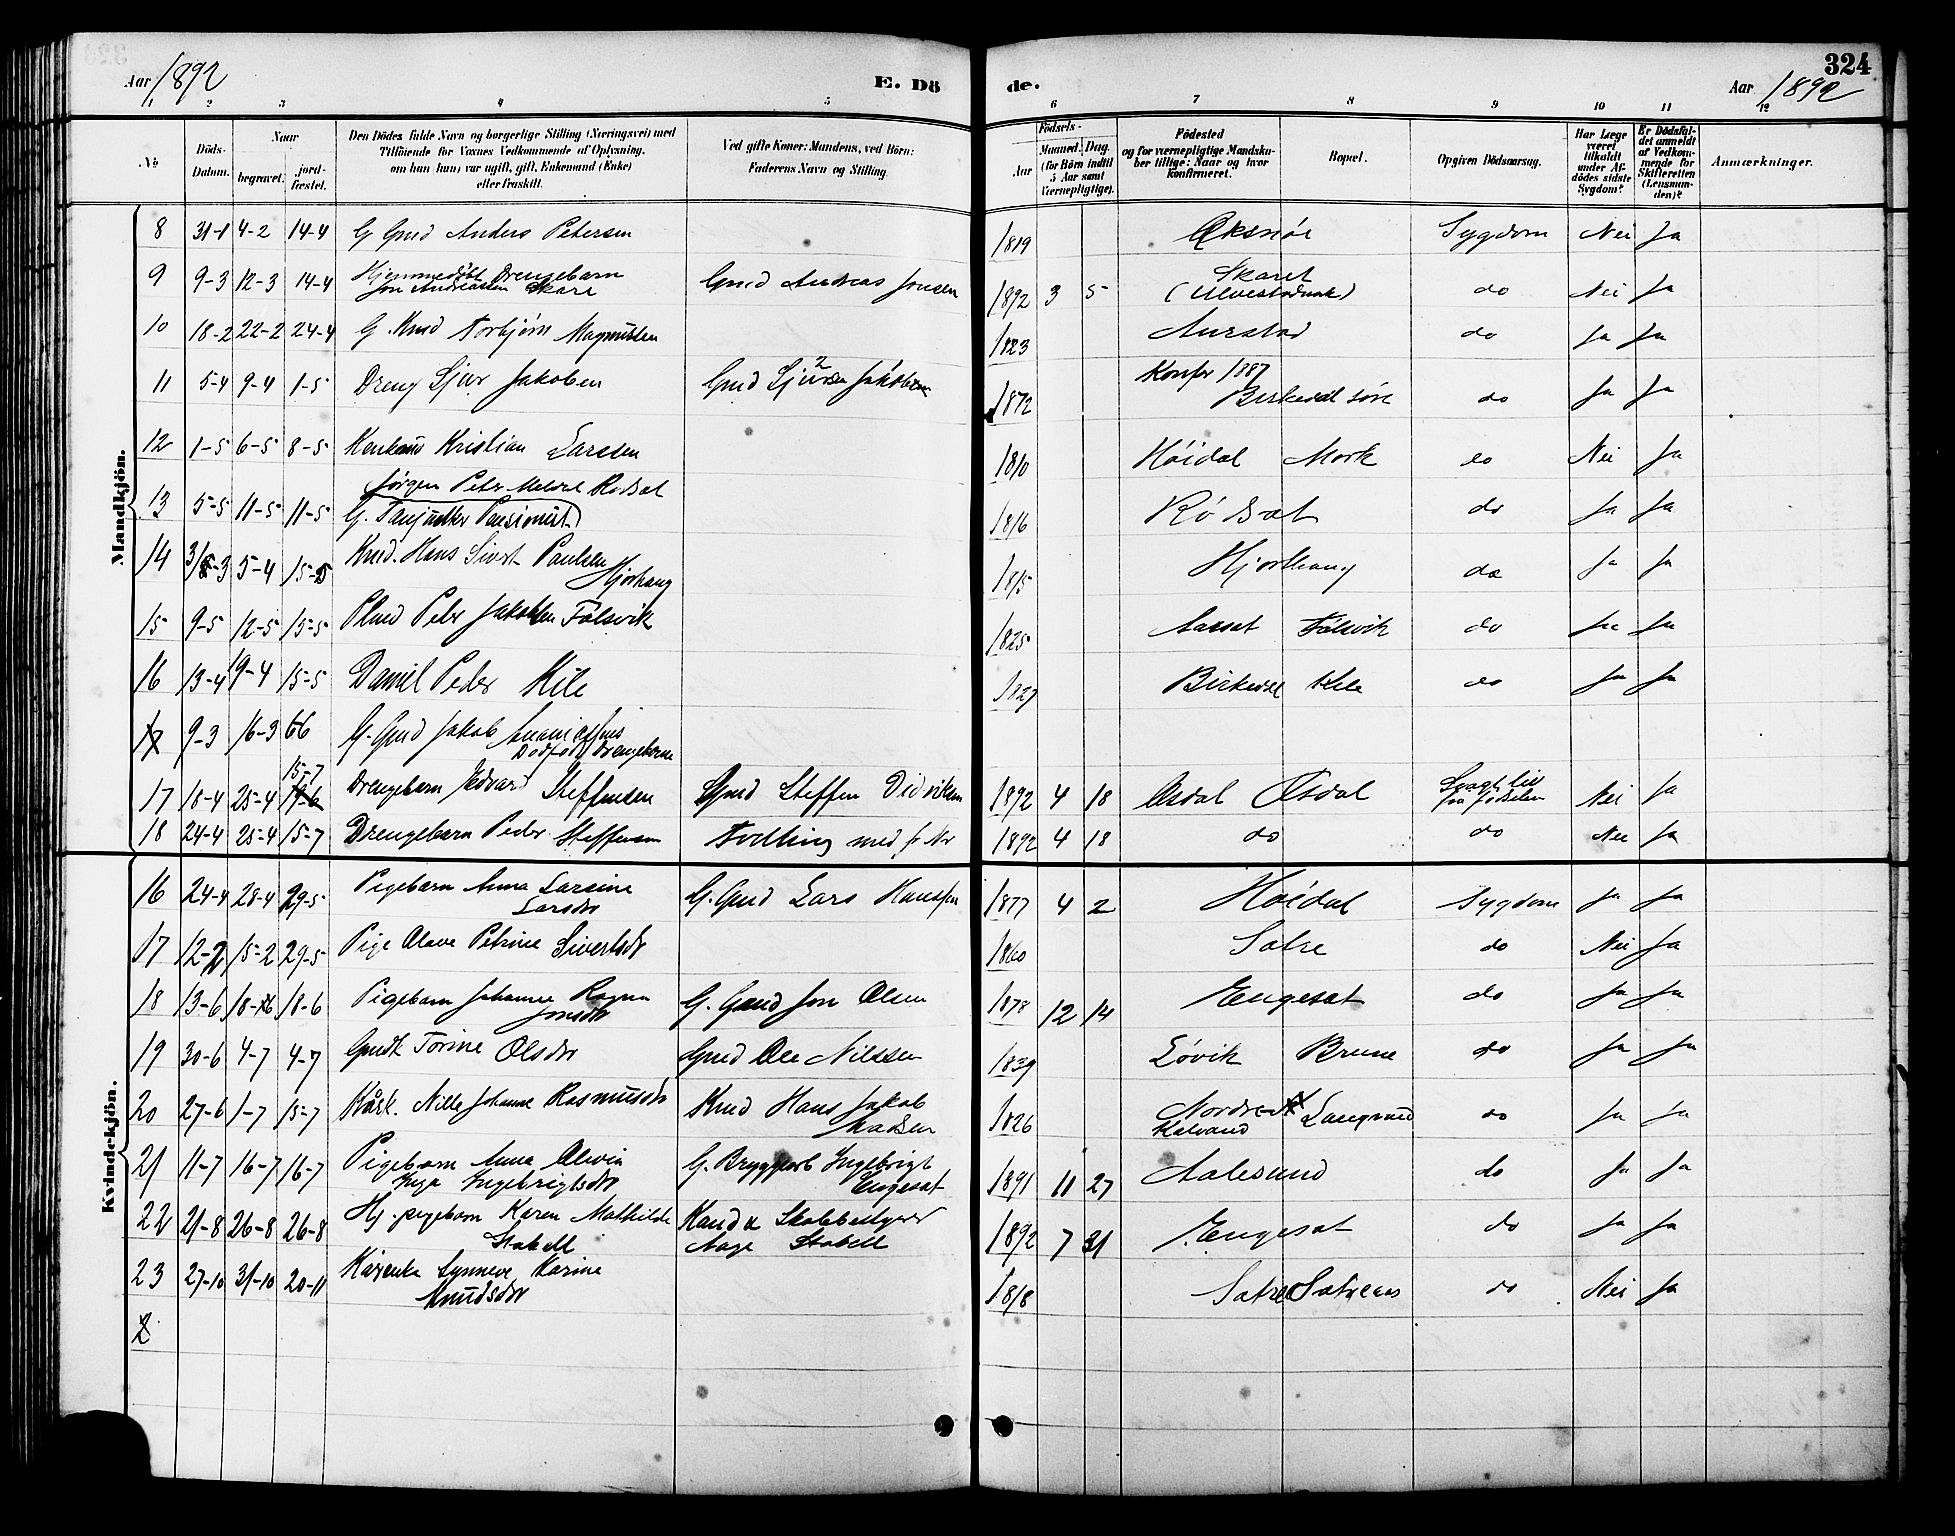 324
Aar 1892
E. Dö
de.
Aar 1892
1 2 3 4 5 6 7 8 9 10 11 12
No
Döds-
Datum.
Naar
begravet.
jord-
fæstet.
Den Dödes fulde Navn og borgerlige Stilling (Næringsvei) med
Tilföiende for Voxnes Vedkommende af Oplysning,
om han (hun) var ugift, gift, Enkemand (Enke)
eller fraskilt.
Ved gifte Koner: Mandens, ved Börn:
Faderens Navn og Stilling.
Födsels-
Aar
Maaned. Dag.
(for Börn indtil
5 Aar samt
Værnepligtige).
Födested
og for værnepligtige Mandsku-
ber tillige: Naar og hvor
konfirmeret.
Bopæl.
Opgiven Dödsaarsag.
Har Læge
været
tilkaldt
under Af-
dödes sidste
Sygdom?
Er Dödsfal-
det anmeldt
af Vedkom-
mende for
Skifteretten
(Lensman-
den)?
Anmærkninger.
Mandkjön.
8 31-1 4-2 14-4 G Gmd Anders Petersen 1819 Sygdom Nei Ja
9 9-3 12-3 14-4 Hjemmedøbt Drengebarn
Jon Andreassen Skare Gmd Andreas Jonsen 1892 3 5 Skaret
do Nei Ja
10 18-2 22-2 24-4 G. Kmd Torbjørn Magnussen 1823 Aurstad do Ja Ja
11 5-4 9-4 1-5 Dreng Sjur Jakobsen Gmd Jakobsen 1872 Konfr 1887
Birkedal søre do Ja Ja
12 1-5 6-5 8-5 Kristian Larsen 1810 Höidal Mork do Nei Ja
13 5-5 11-5 11-5 Jørgen Peter Rödsæt
G. Pensionist) 1816 Rödsæt do Ja Ja
14 5-4 Kmd. Hans Sivert Paulsen
Hjorthaug 1815 Hjorthaug do Ja Ja
15 9-5 12-5 15-5 Plmd Peder Jakobsen Følsvik 1825 Aarsæt Følsvik do Ja Ja
16 13-4 19-4 15-5 Daniel Peder Kile 1827 Birkedal Kile do Ja Ja
17 9-3 16-3 66 G. Gmd Jakob
Dødfødt Drengebarn
15-7
17 18-4 25-4 19-6 Drengebarn Edvard Steffensen Gmd Steffen Didriksen 1892 4 18 Øsdal Øsdal Svagt lill
fra fødselen Nei Ja
18 24-4 25-4 15-7 Drengebarn Peder Steffensen Tvilling med fr No 1892 4 18 do do Nei Ja
Kvindekjön.
16 24-4 28-4 29-5 Pigebarn Anna Larsine
Larsdtr G. Gmd Lars Hanssen 1877 4 2 Höidal Sygdom Ja Ja
17 12-2 15-2 29-5 Pige Olave Petrine Sivertsdtr 1860 Sætre do Nei Ja
18 13-6 18-6 18-6 Pigebarn Johanne Ragna
Jonsdtr G. Gmd Jon Olsen 1878 12 14 Engesæt do Ja Ja
19 30-6 4-7 4-7 Gmdk Torine Olsdtr Gmd Ole Nilssen 1839 Løvik Brune do Ja Ja
20 27-6 1-7 15-7 Nille Johanne Rasmusdtr Kmd Hans Jakob
Madsen 1826 Nordre
Kalvand Langvand do Ja Ja
21 11-7 16-7 16-7 Pigebarn Anna Olevia
Inga Ingebrigtsdtr G. Ingebrigt
Engesæt 1891 11 27 Aalesund do Ja Ja
22 21-8 26-8 26-8 Hj. pigebarn Karen Mathilde
Stabell Kand
Aage Stabell 1892 7 31 Engesæt do Ja Ja
23 27-10 31-10 20-11 Synneve Karine
Knudsdtr 1818 Sætre do Nei Ja